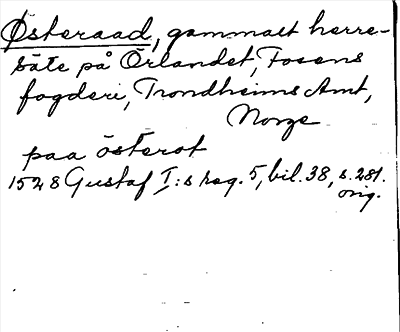 Østeraad, gammalt herre-
säte på Örlandet, Fosens
fogderi, Trondheims Amt,
Norge
paa österot
1528 Gustaf I:s reg. 5, bil. 38, s. 281.
orig.